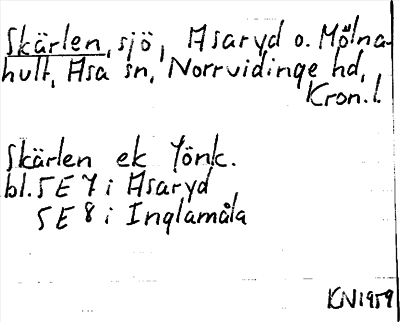 Skärlen, sjö, Asaryd o. Mölna-
hult, Asa sn, Norrvidinge hd,
Kron.l.
Skärlen ek Jönk.
bl. 5 E 7 i Asaryd
5 E 8 i Inglamåla
KN1959